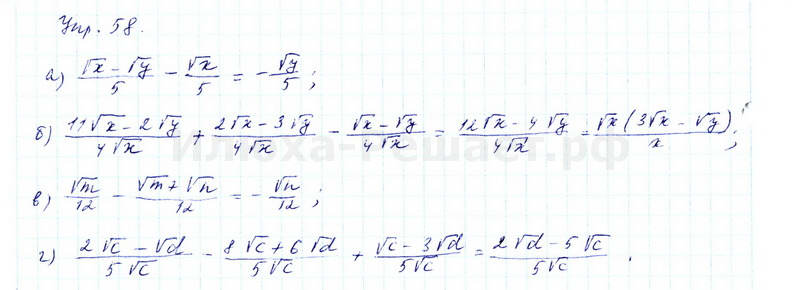 Упр. 58.
а) (√x − √y)/5 − √x/5 = −√y/5;
б) (11√x − 2√y)/(4√x) + (2√x − 3√y)/(4√x) − (√x − √y)/(4√x) = (12√x − 4√y)/(4√x) = √x(3√x − √y)/x;
в) √m/12 − (√m + √n)/12 = −√n/12;
г) (2√c − √d)/(5√c) − (8√c + 6√d)/(5√c) + (√c − 3√d)/(5√c) = (2√d − 5√c)/(5√c).
Илюха-Решает.рф